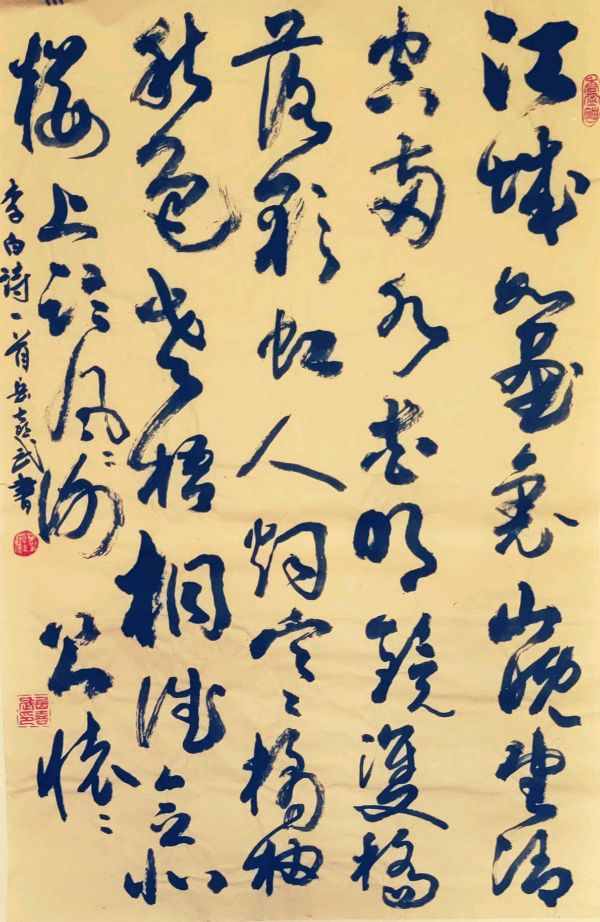 江城如畫裏山晚望清
空兩水夾明鏡雙橋
落彩虹人烟寒橘柚
秋色老梧桐誰念北
樓上臨風謝公懷
李白詩一首岳喜武書